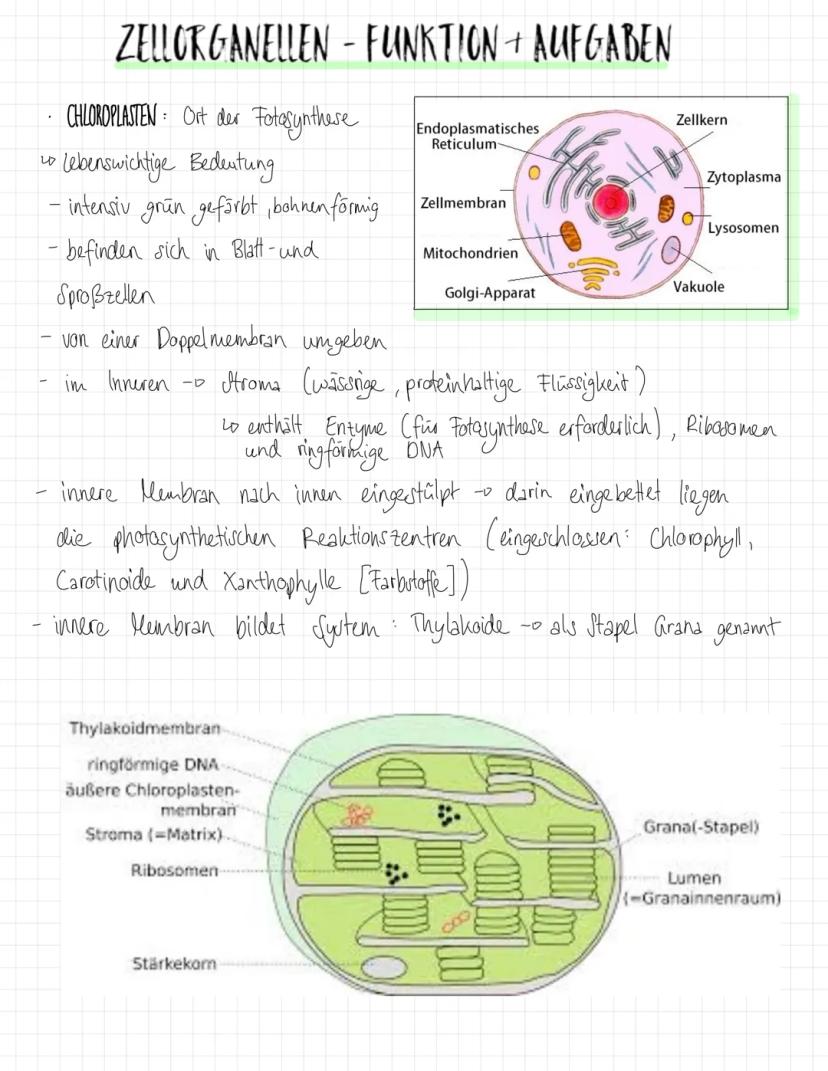 ZELLORGANELLEN - FUNKTION + AUFGABEN
· CHLOROPLASTEN: Ort der Fotosynthese
↳ lebenswichtige Bedeutung
- intensiv grün gefärbt, bohnenförmig
- befinden sich in Blatt- und
Sproßzellen
- von einer Doppelmembran umgeben
- im Inneren → Stroma (wässrige, proteinhaltige Flüssigkeit)
↳ enthält Enzyme (für Fotosynthese erforderlich), Ribosomen
und ringförmige DNA
- innere Membran nach innen eingestülpt → darin eingebettet liegen
die photosynthetischen Reaktionszentren (eingeschlossen: Chlorophyll,
Carotinoide und Xanthophylle [Farbstoffe])
- innere Membran bildet System: Thylakoide → als Stapel Grana genannt
Endoplasmatisches
Reticulum
Zellmembran
Mitochondrien
Golgi-Apparat
Zellkern
Zytoplasma
Lysosomen
Vakuole
Thylakoidmembran
ringförmige DNA
äußere Chloroplasten-
membran
Stroma (=Matrix)
Ribosomen
Stärkekorn
Grana(-Stapel)
Lumen
(=Granainnenraum)